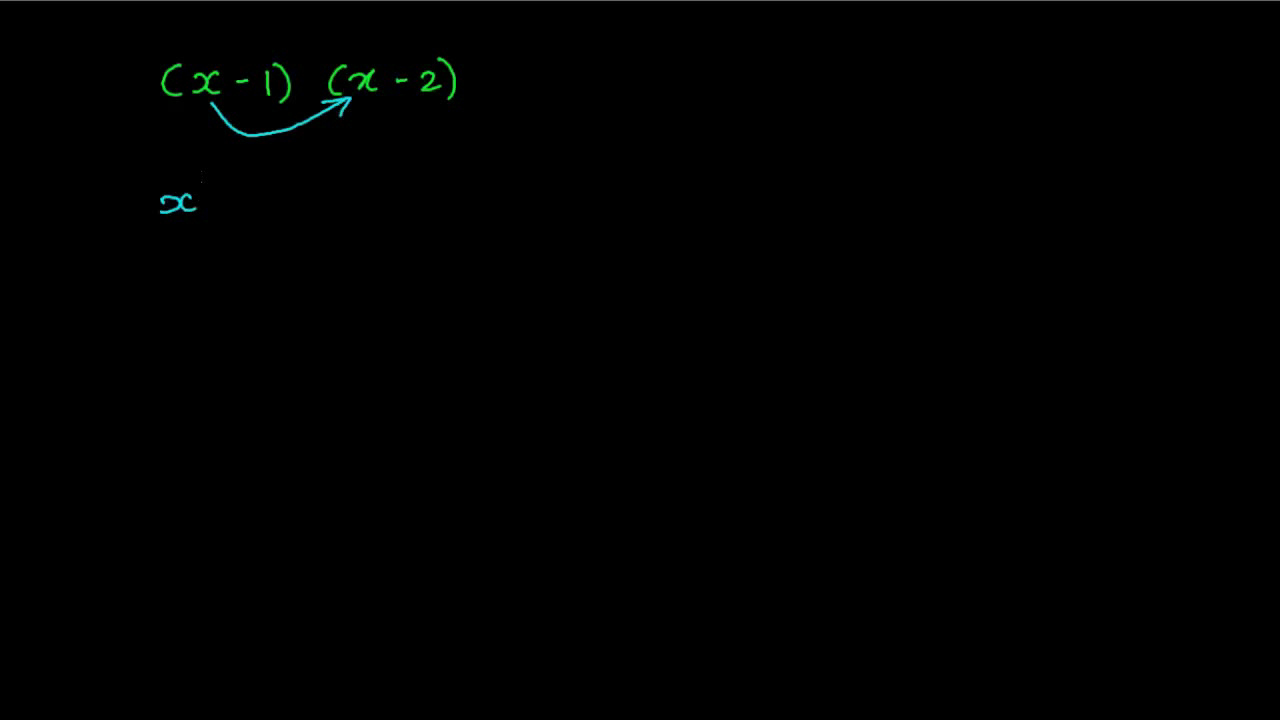 (x - 1) (x - 2)
x